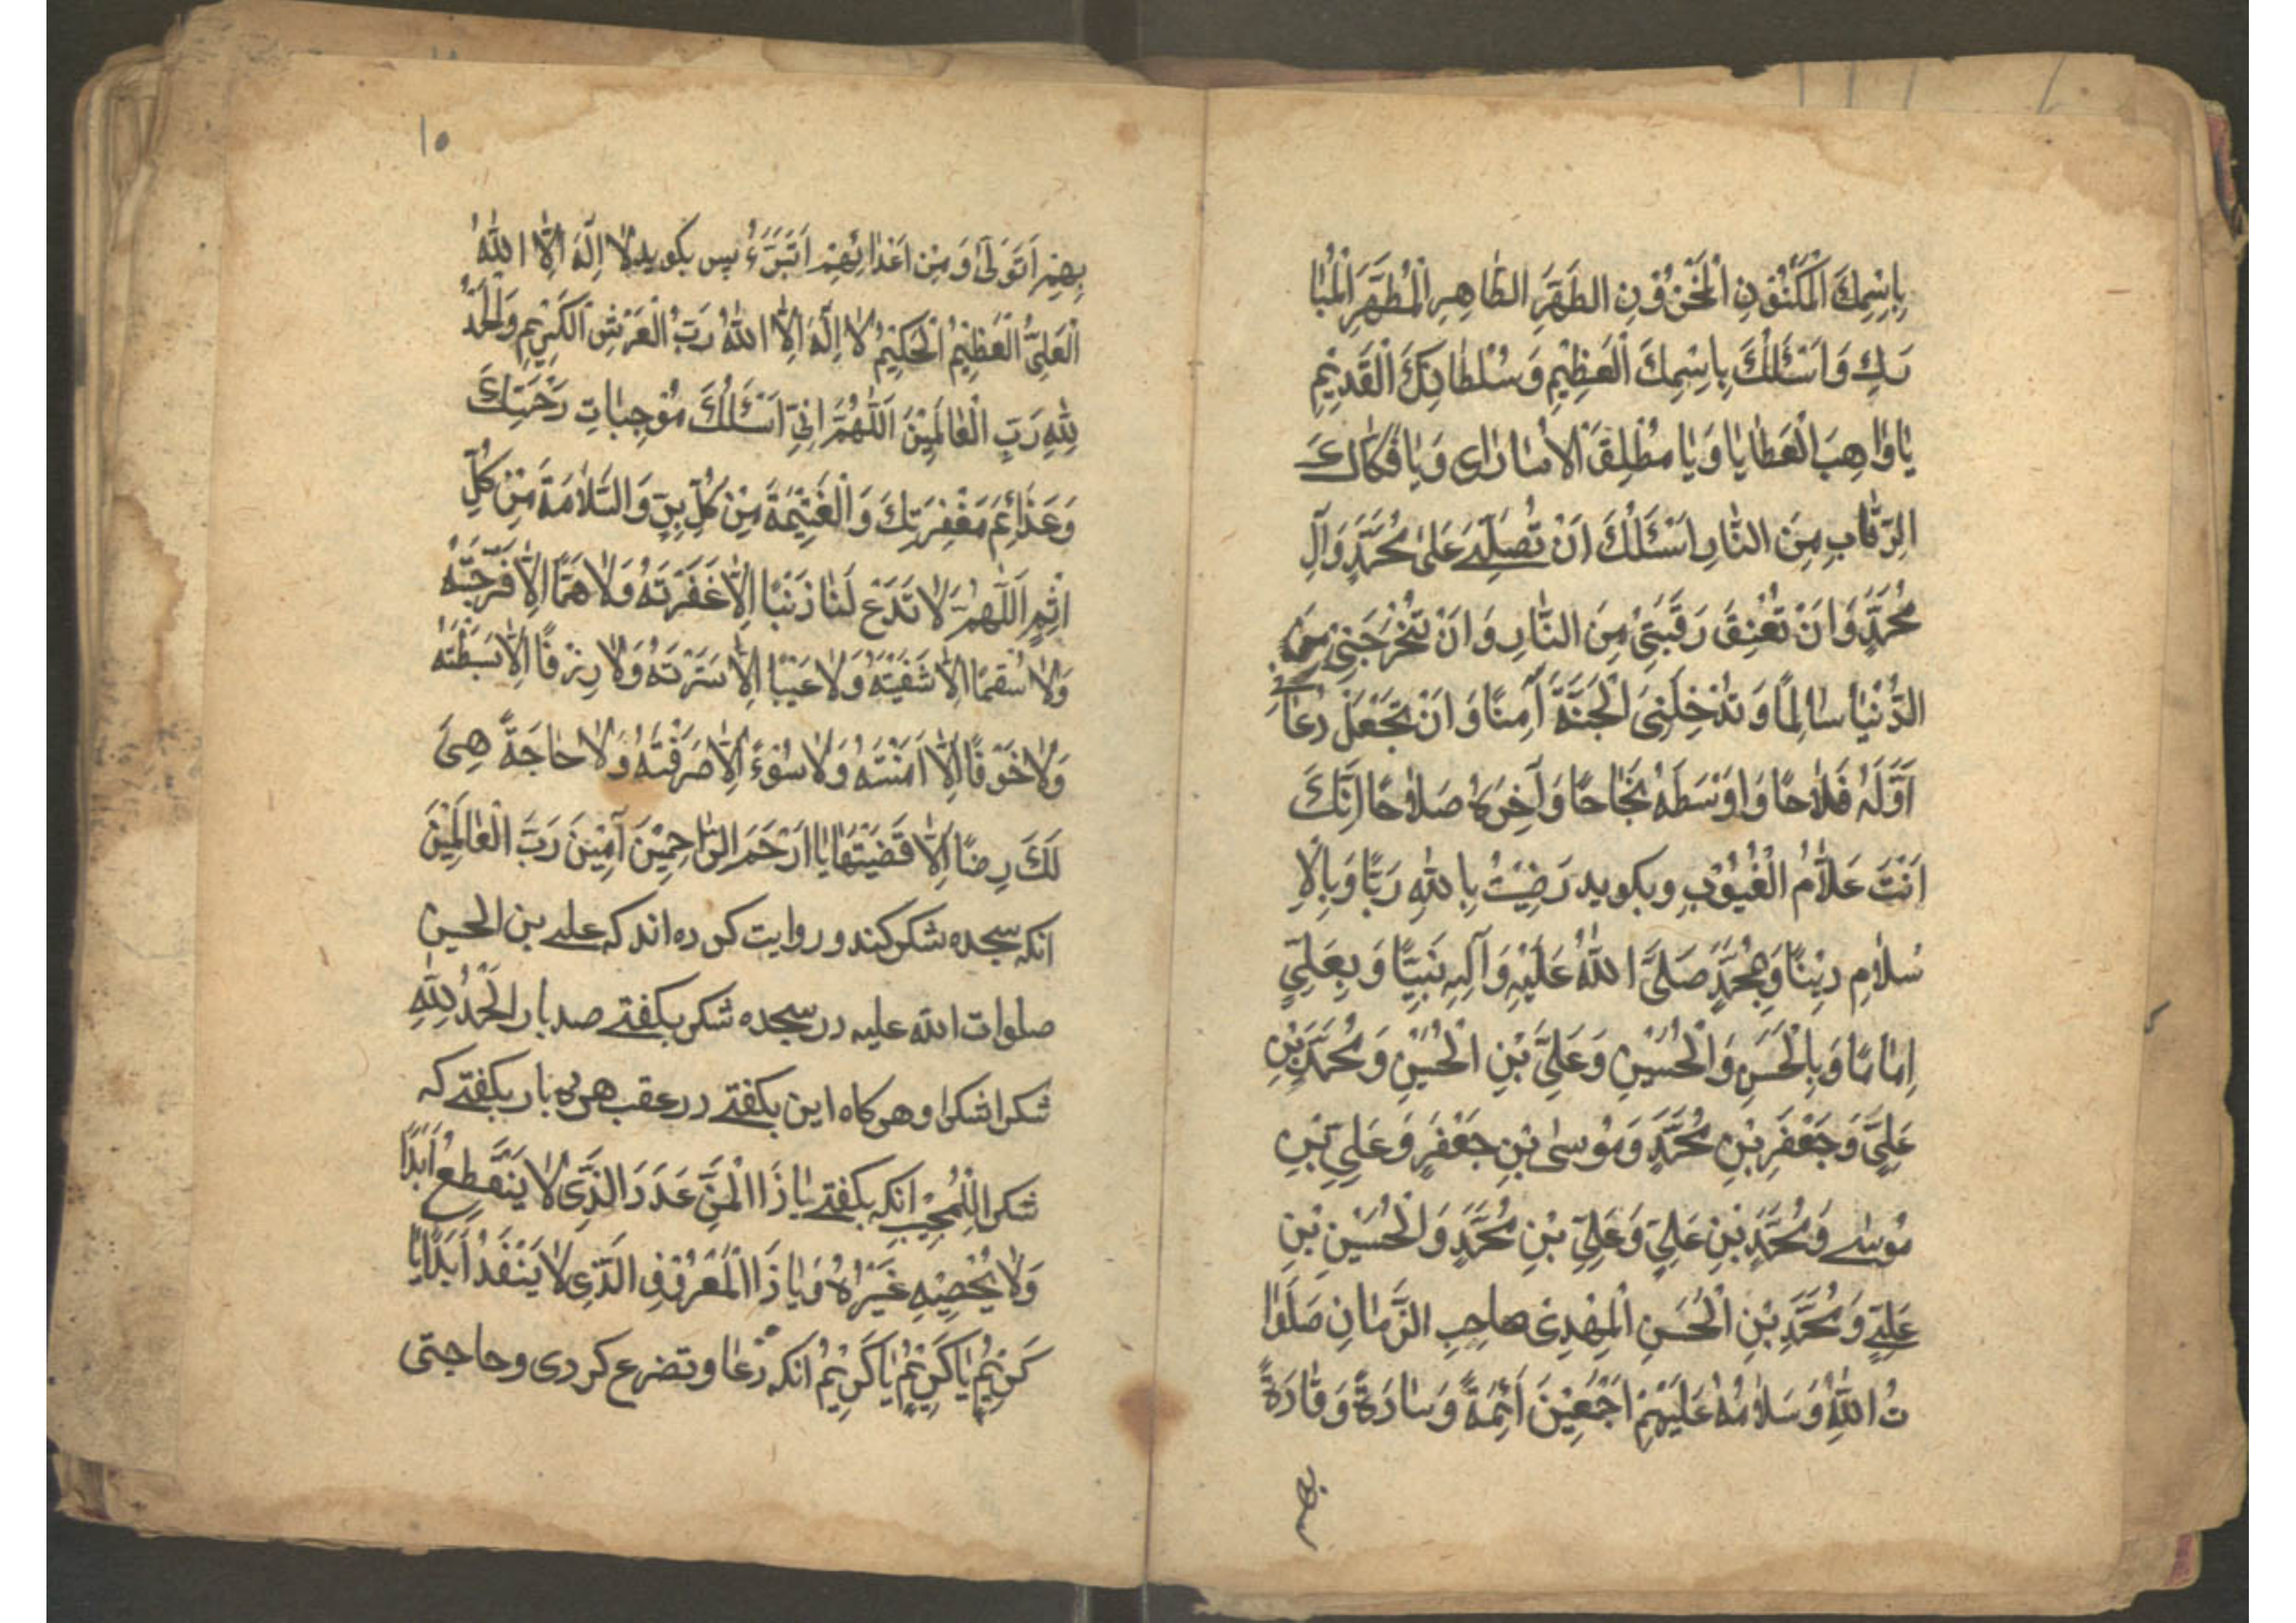 بِاِسْمِكَ الْمَكْنُوْنِ الْمَخْزُوْنِ الطَّهْرِ الطّاهِرِ الْمُطَهَّرِ الْمُبٰا
رَكِ وَاَسْئَلُكَ بِاسْمِكَ الْعَظِيْمِ وَسُلْطٰانِكَ الْقَدِيْمِ
يٰا وٰاهِبَ الْعَطٰايٰا وَيٰا مُطْلِقَ الْاُسٰارٰى وَيٰا فَكّٰاكَ
الرِّقٰابِ مِنَ النّٰارِ اَسْئَلُكَ اَنْ تُصَلِّيَ عَلىٰ مُحَمَّدٍ وَآلِ
مُحَمَّدٍ وَاَنْ تُعْتِقَ رَقَبَتِيْ مِنَ النّٰارِ وَاَنْ تُخْرِجَنِيْ مِنَ
الدُّنْيٰا سٰالِمًا وَتُدْخِلَنِيَ الْجَنَّةَ آمِنًا وَاَنْ تَجْعَلَ دُعٰائِيْ
اَوَّلَهُ فَلٰاحًا وَاَوْسَطَهُ نَجٰاحًا وَآخِرَهُ صَلٰاحًا اِنَّكَ
اَنْتَ عَلّٰامُ الْغُيُوْبِ وبكويد رَضِيْتُ بِاللّٰهِ رَبًّا وَبِالْاِ
سْلٰامِ دِيْنًا وَبِمُحَمَّدٍ صَلَّى اللّٰهُ عَلَيْهِ وَآلِهِ نَبِيًّا وَبِعَلِيٍّ
اِمٰامًا وَبِالْحَسَنِ وَالْحُسَيْنِ وَعَلِيِّ بْنِ الْحُسَيْنِ وَمُحَمَّدِ بْنِ
عَلِيٍّ وَجَعْفَرِ بْنِ مُحَمَّدٍ وَمُوْسىٰ بْنِ جَعْفَرٍ وَعَلِيِّ بْنِ
مُوْسىٰ وَمُحَمَّدِ بْنِ عَلِيٍّ وَعَلِيِّ بْنِ مُحَمَّدٍ وَالْحُسَيْنِ بْنِ
عَلِيٍّ وَمُحَمَّدِ بْنِ الْحَسَنِ الْمَهْدِيْ صٰاحِبِ الزَّمٰانِ صَلَوٰا
تُ اللّٰهِ وَسَلٰامُهُ عَلَيْهِمْ اَجْمَعِيْنَ اَئِمَّةً وَسٰادَةً وَقٰادَةً
١٥
بِهِمْ اَتَوَلّىٰ وَمِنْ اَعْدٰائِهِمْ اَتَبَرَّءُ پس بكويد لٰا اِلٰهَ اِلَّا اللّٰهُ
الْعَلِيُّ الْعَظِيْمُ الْحَكِيْمُ لٰا اِلٰهَ اِلَّا اللّٰهُ رَبُّ الْعَرْشِ الْكَرِيْمِ وَالْحَمْدُ
لِلّٰهِ رَبِّ الْعٰالَمِيْنَ اَللّٰهُمَّ اِنِّيْ اَسْئَلُكَ مُوْجِبٰاتِ رَحْمَتِكَ
وَعَزٰائِمَ مَغْفِرَتِكَ وَالْغَنِيْمَةَ مِنْ كُلِّ بِرٍّ وَالسَّلٰامَةَ مِنْ كُلِّ
اِثْمٍ اَللّٰهُمَّ لٰا تَدَعْ لَنٰا ذَنْبًا اِلّٰا غَفَرْتَهُ وَلٰا هَمًّا اِلّٰا فَرَّجْتَهُ
وَلٰا سُقْمًا اِلّٰا شَفَيْتَهُ وَلٰا عَيْبًا اِلّٰا سَتَرْتَهُ وَلٰا رِزْقًا اِلّٰا بَسَطْتَهُ
وَلٰا خَوْفًا اِلّٰا آمَنْتَهُ وَلٰا سُوْءً اِلّٰا صَرَفْتَهُ وَلٰا حٰاجَةً هِيَ
لَكَ رِضًا اِلّٰا قَضَيْتَهٰا يٰا اَرْحَمَ الرّٰاحِمِيْنَ آمِيْنَ رَبَّ الْعٰالَمِيْنَ
انكه سجده شكر كند و روايت كرده اند كه على بن الحسين
صلوات الله عليه در سجده شكر بكفتے صد بار اَلْحَمْدُ لِلّٰهِ
شكرا شكرا و هر كاه اين بكفتے در عقب هر ده بار بكفتے كه
شكرا لِلْمُجِيْبِ انكه بكفتے يٰا ذَا الْمَنِّ عَدَدَ الَّذِىْ لٰا يَنْقَطِعُ اَبَدًا
وَلٰا يُحْصِيْهِ غَيْرُهُ وَيٰا ذَا الْمَعْرُوْفِ الَّذِىْ لٰا يَنْفَدُ اَبَدًا يٰا
كَرِيْمُ يٰا كَرِيْمُ يٰا كَرِيْمُ انكه دُعا و تضرع كردى و حاجتى